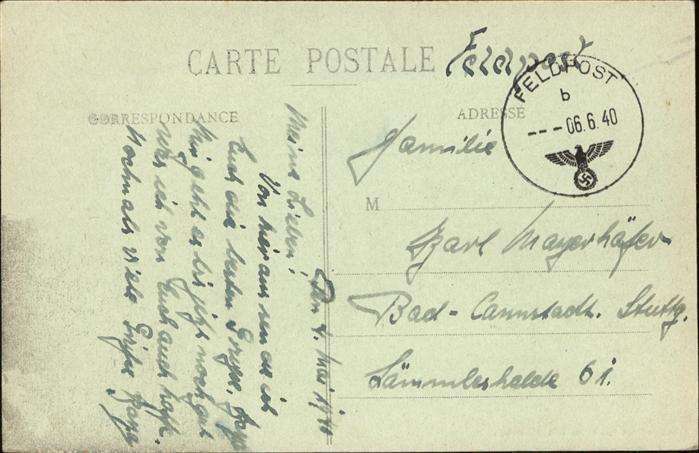 CARTE POSTALE
Feldpost
FELDPOST
b
--- 06.6.40
CORRESPONDANCE
ADRESSE
Familie
M
Karl Mayerhöfer
Bad-Cannstadt. Stuttg.
Sämmleshalde 61.
Den 4. Mai 1940
Meine Lieben!
Von hier aus sende ich
Euch die besten Grüße.
Mir geht es bis jetzt noch gut
was ich von Euch auch hoffe.
Nochmals viele Grüße